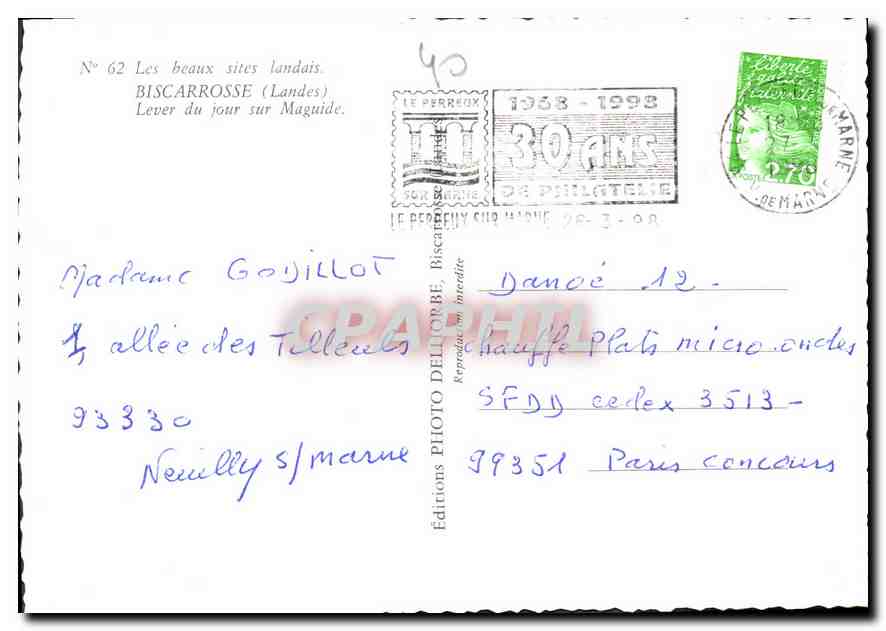 N° 62 Les beaux sites landais.
BISCARROSSE (Landes)
Lever du jour sur Maguide.
40
LE PERREUX
SUR MARNE
1968 - 1998
30 ANS
DE PHILATELIE
LE PERREUX SUR MARNE 28-3-98
liberté
égalité
fraternité
POSTE
2,70
MARNE
DE MARNE
Madame GODILLOT
1, allée des Tilleuls
93330
Neuilly s/marne
Editions PHOTO DELHORBE, Biscarrosse Landes
Reproduction interdite
CPAPHIL
Danoé 12 -
chauffe Plats micro ondes
SFDD cedex 3513 -
99351 Paris concours